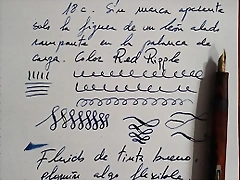 18 c. Sin marca aparente
solo la figura de un león alado
rampante en la palanca de
carga. Color Red Ripple
Fluido de tinta bueno,
plumín algo flexible.